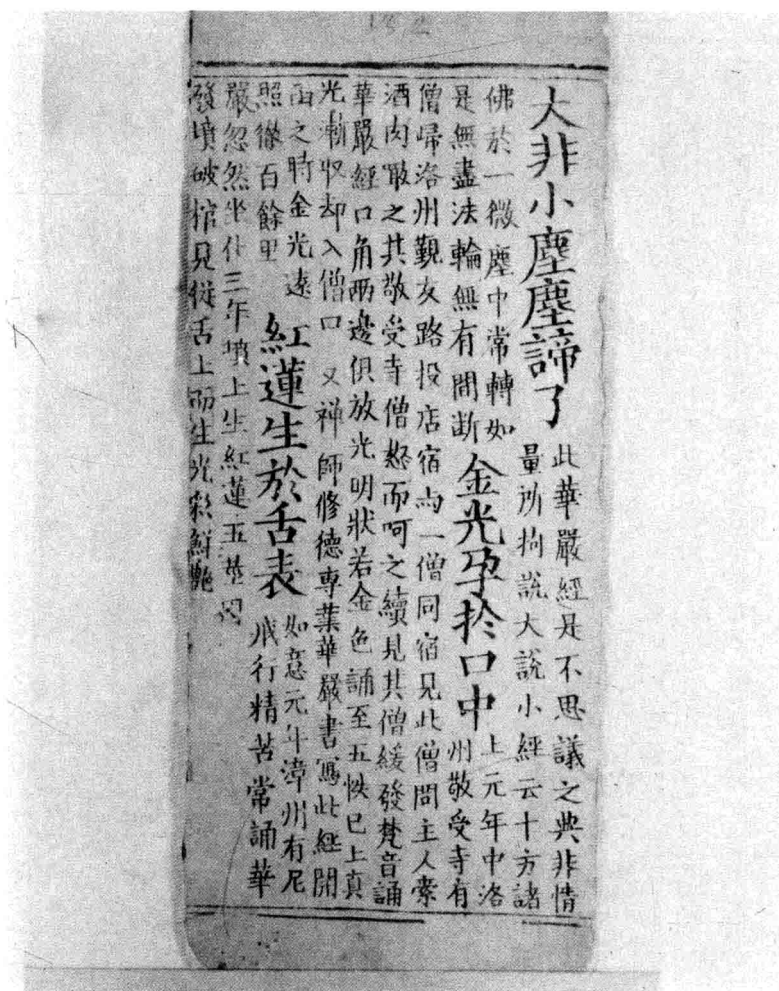 大非小塵塵諦了
此華嚴經是不思議之典非情
量所拘說大說小經云十方諸
佛於一微塵中常轉如
是無盡法輪無有間断
金光孕扵口中
上元年中洛
州敬受寺有
僧歸洛州覲友路投店宿与一僧同宿見此僧問主人索
酒肉噉之其敬受寺僧怒而呵之續見其僧緩發梵音誦
華嚴經口角兩邊俱放光明狀若金色誦至五帙已上真
光漸収却入僧口 又禅師修德專業華嚴書寫此經開
函之時金光遠
照徹百餘里
紅蓮生於舌表
如意元年漳州有尼
戒行精苦常誦華
嚴忽然坐化三年墳上生紅蓮五莖因
發墳破棺見從舌上而生光彩鮮艷